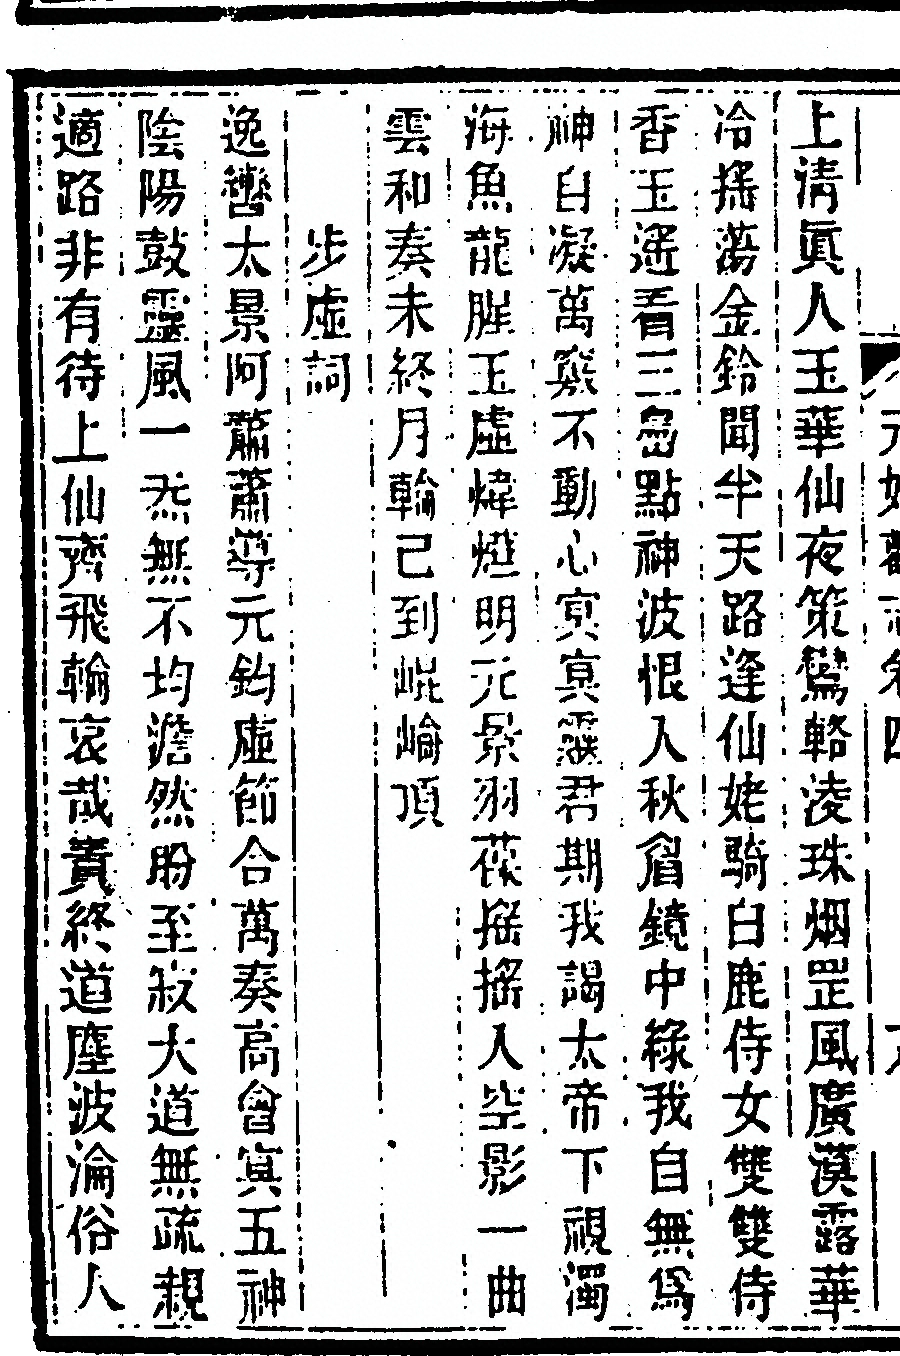 上清眞人玉華仙夜策鸞輅淩珠烟罡風廣漠露華
冷搖蕩金鈴聞半天路逢仙姥騎白鹿侍女雙雙侍
香玉遙看三島點神波恨人秋眉鏡中綠我自無爲
神自凝萬竅不動心㝠㝠靈君期我謁太帝下視濁
海魚龍腥玉虛煒燈明元景羽葆搖搖人空影一曲
雲和奏未終月輪已到崐崘頂
步虛詞
逸轡太景阿蕭蕭導元鈞虛節合萬奏高會㝠五神
陰陽鼓靈風一炁無不均澹然肹至寂大道無疏親
適路非有待上仙齊飛輪哀哉責終道塵波淪俗人